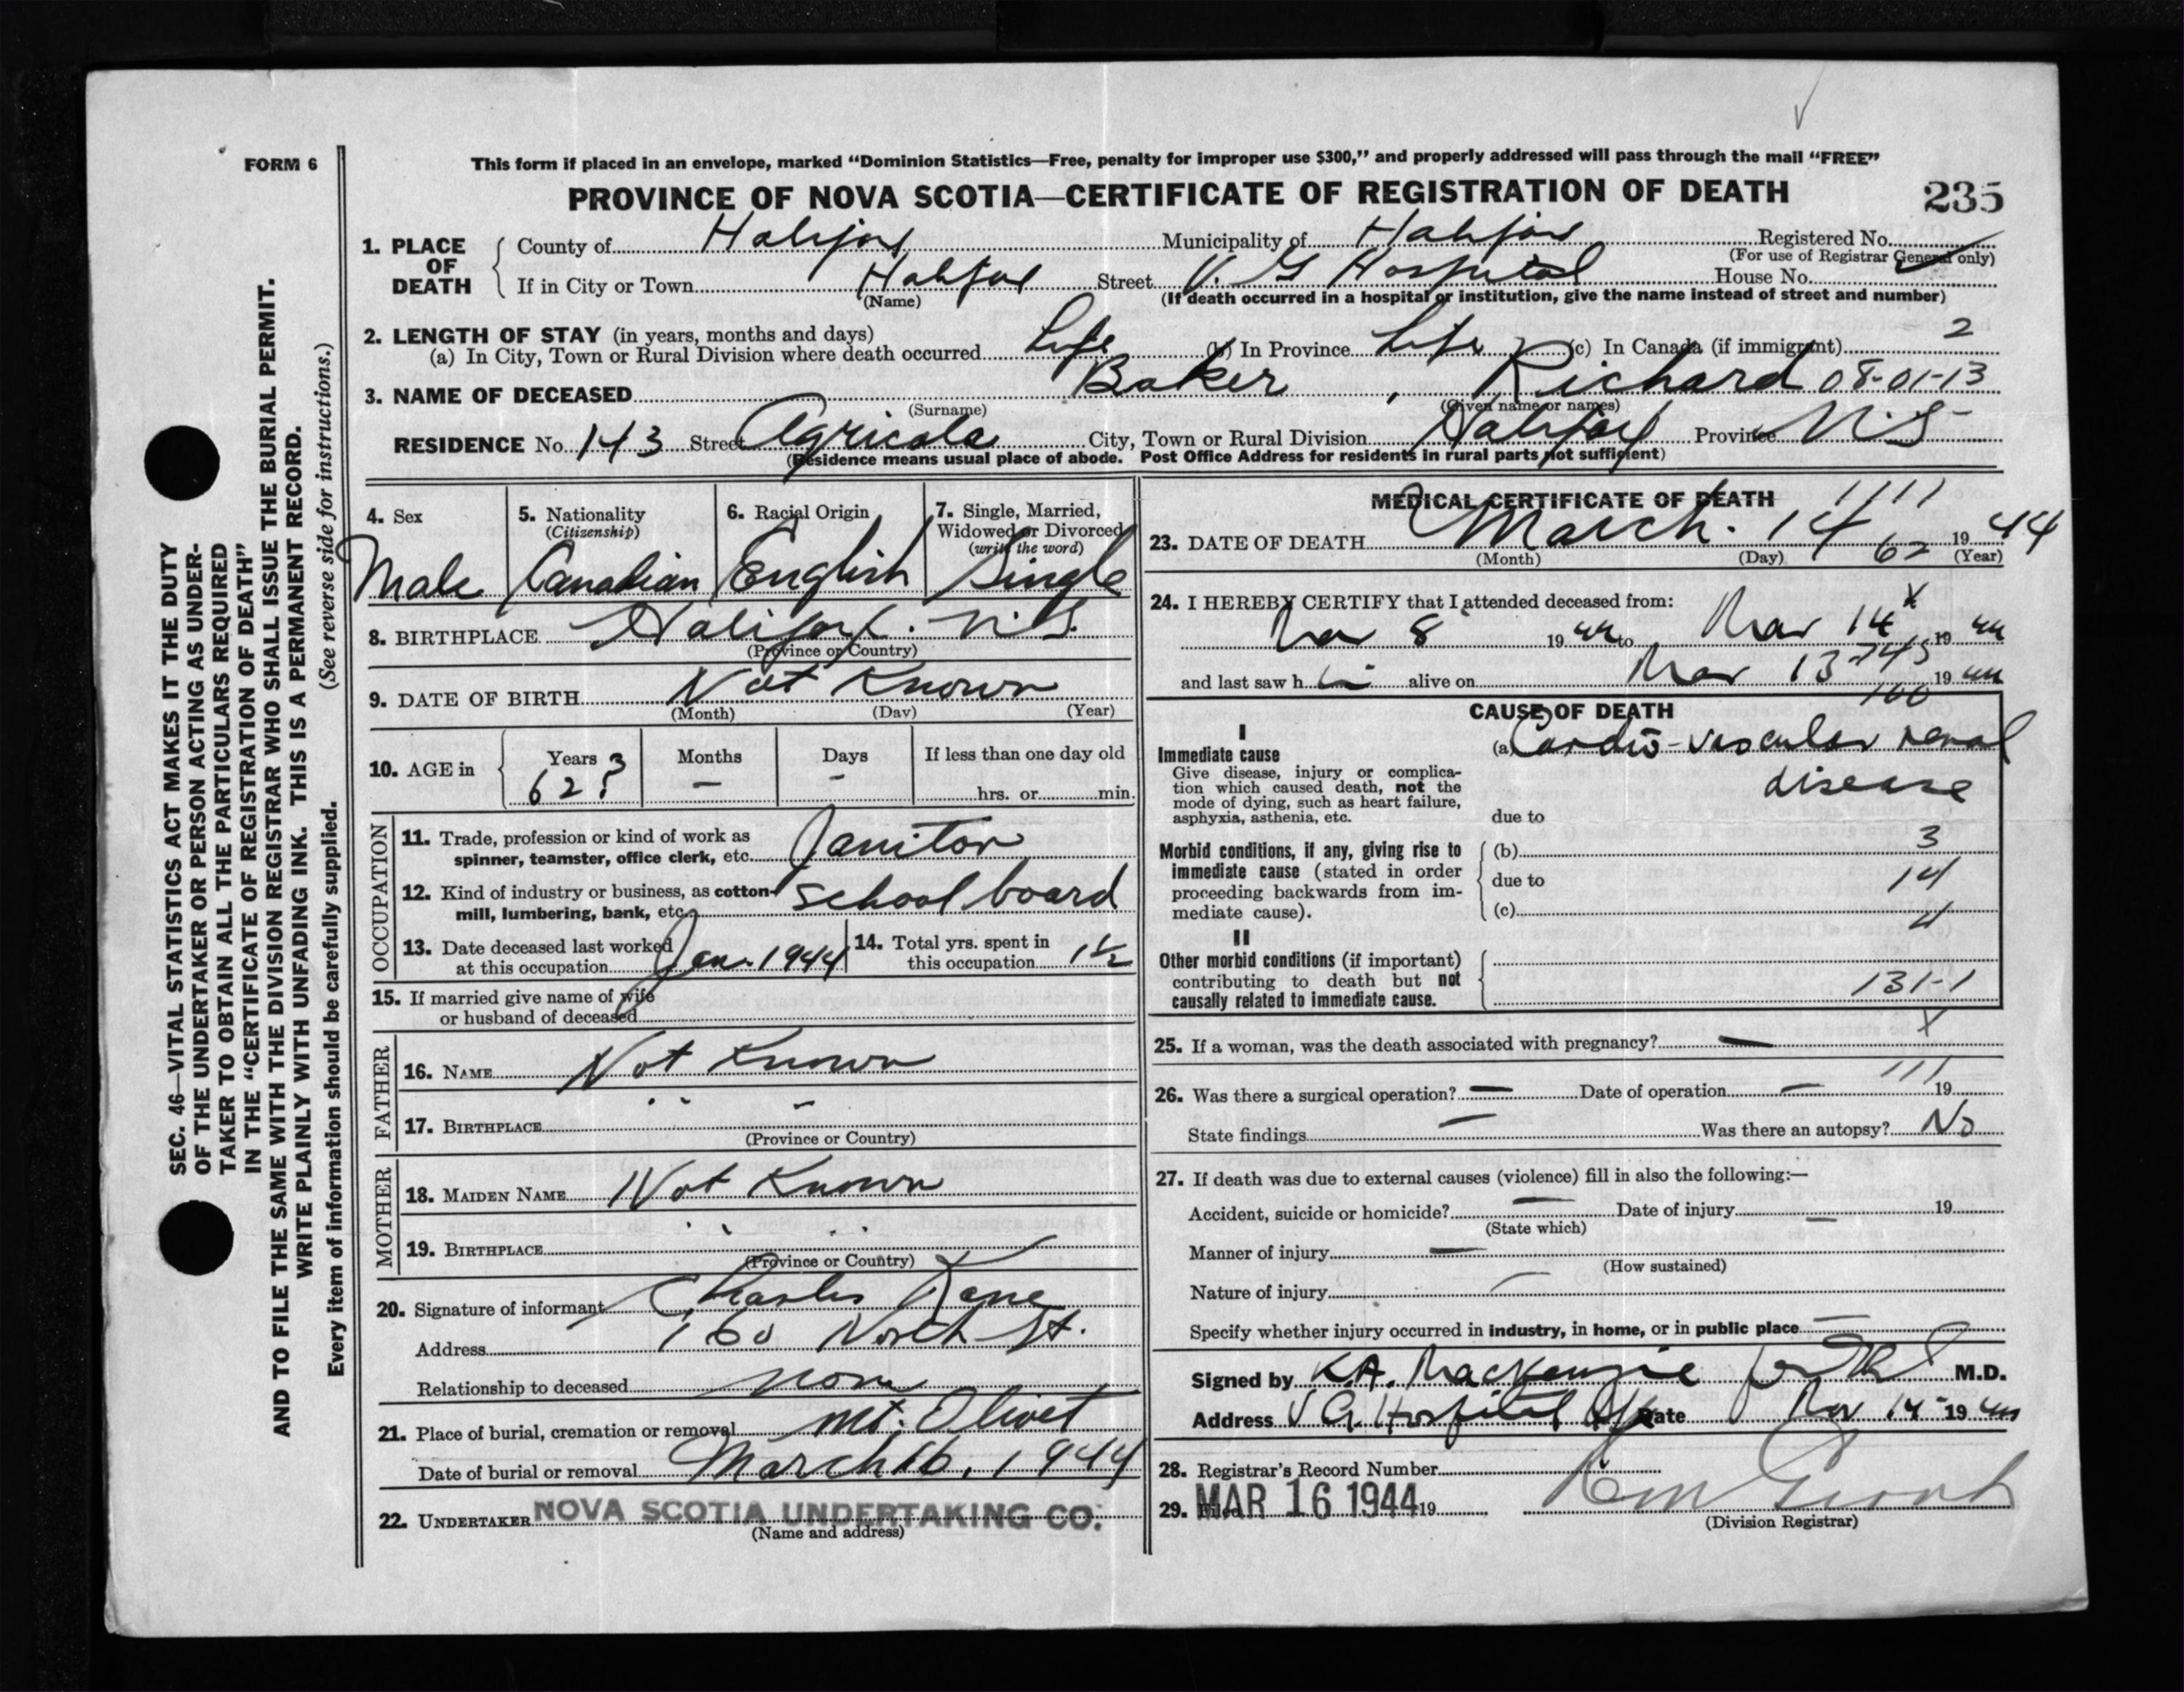 FORM 6
This form if placed in an envelope, marked “Dominion Statistics—Free, penalty for improper use $300,” and properly addressed will pass through the mail “FREE”
PROVINCE OF NOVA SCOTIA—CERTIFICATE OF REGISTRATION OF DEATH
235
SEC. 46—VITAL STATISTICS ACT MAKES IT THE DUTY
OF THE UNDERTAKER OR PERSON ACTING AS UNDER-
TAKER TO OBTAIN ALL THE PARTICULARS REQUIRED
IN THE “CERTIFICATE OF REGISTRATION OF DEATH”
AND TO FILE THE SAME WITH THE DIVISION REGISTRAR WHO SHALL ISSUE THE BURIAL PERMIT.
WRITE PLAINLY WITH UNFADING INK. THIS IS A PERMANENT RECORD.
Every item of information should be carefully supplied. (See reverse side for instructions.)
1. PLACE OF DEATH
County of Halifax Municipality of Halifax Registered No.
(For use of Registrar General only)
If in City or Town Halifax Street V. G Hospital House No.
(Name) (If death occurred in a hospital or institution, give the name instead of street and number)
2. LENGTH OF STAY (in years, months and days)
(a) In City, Town or Rural Division where death occurred Life (b) In Province Life (c) In Canada (if immigrant) 2
3. NAME OF DECEASED Baker, Richard 08-01-13
(Surname) (Given name or names)
RESIDENCE No. 143 Street Agricola City, Town or Rural Division Halifax Province N.S
(Residence means usual place of abode. Post Office Address for residents in rural parts not sufficient)
4. Sex
Male
5. Nationality
(Citizenship)
Canadian
6. Racial Origin
English
7. Single, Married,
Widowed or Divorced
(write the word)
Single
8. BIRTHPLACE Halifax. N.S.
(Province or Country)
9. DATE OF BIRTH Not Known
(Month) (Day) (Year)
10. AGE in
Years 3 Months Days If less than one day old
62? – – hrs. or min.
OCCUPATION
11. Trade, profession or kind of work as
spinner, teamster, office clerk, etc. Janitor
12. Kind of industry or business, as cotton-
mill, lumbering, bank, etc. School board
13. Date deceased last worked
at this occupation Jan. 1944
14. Total yrs. spent in
this occupation 1½
15. If married give name of wife
or husband of deceased
FATHER
16. NAME Not Known
17. BIRTHPLACE " –
(Province or Country)
MOTHER
18. MAIDEN NAME Not Known
19. BIRTHPLACE " "
(Province or Country)
20. Signature of informant Charles Kane
Address 160 North St.
Relationship to deceased none
21. Place of burial, cremation or removal Mt. Olivet
Date of burial or removal March 16, 1944
22. UNDERTAKER NOVA SCOTIA UNDERTAKING CO.
(Name and address)
MEDICAL CERTIFICATE OF DEATH 1111
23. DATE OF DEATH March. 14 62 1944
(Month) (Day) (Year)
24. I HEREBY CERTIFY that I attended deceased from: x
Mar 8 1944 to Mar 14 1944
and last saw him alive on Mar 13 1944
100
CAUSE OF DEATH
I
Immediate cause
Give disease, injury or complica-
tion which caused death, not the
mode of dying, such as heart failure,
asphyxia, asthenia, etc.
(a) Cardio-vascular renal
disease
due to
Morbid conditions, if any, giving rise to
immediate cause (stated in order
proceeding backwards from im-
mediate cause).
(b) 3
due to 14
(c) 4
II
Other morbid conditions (if important)
contributing to death but not
causally related to immediate cause.
131-1
25. If a woman, was the death associated with pregnancy? — x
111
26. Was there a surgical operation? — Date of operation — 19
State findings — Was there an autopsy? No
27. If death was due to external causes (violence) fill in also the following:—
Accident, suicide or homicide? — Date of injury — 19
(State which)
Manner of injury —
(How sustained)
Nature of injury —
Specify whether injury occurred in industry, in home, or in public place —
Signed by K.A. MacKenzie M.D.
Address V G. Hospital Date Mar 14 1944
28. Registrar's Record Number
29. Filed MAR 16 1944 19
(Division Registrar)